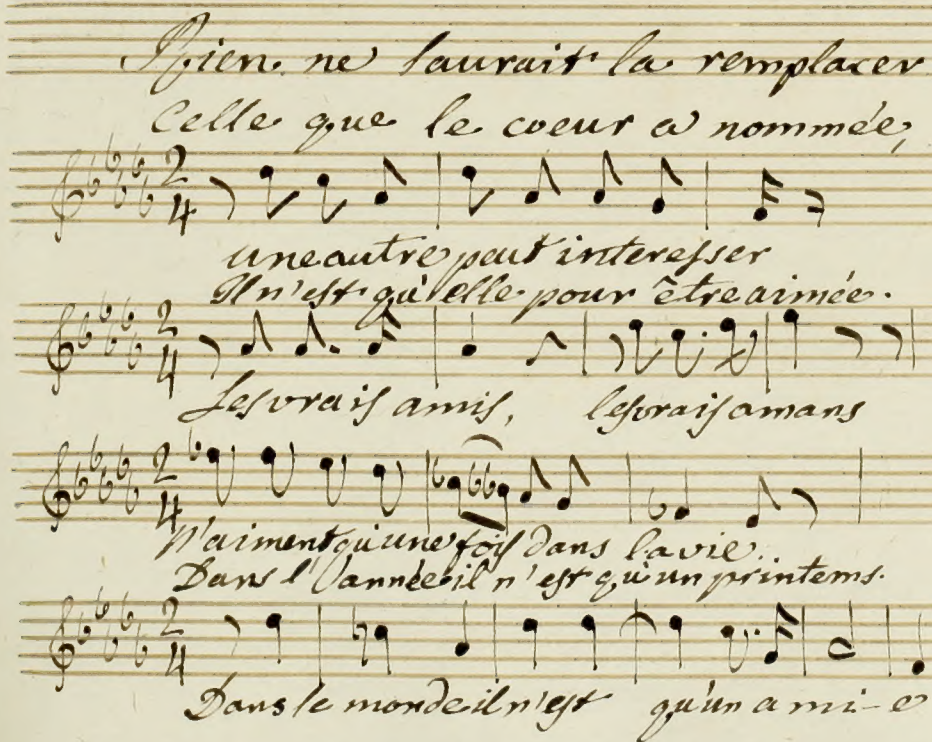 Rien ne saurait la remplacer
Celle que le coeur a nommée,
une autre peut interesser
Il n'est qu'elle pour être aimée.
Les vrais amis, les vrais amans
N'aiment qu'une fois dans la vie.
Dans l'année il n'est qu'un printems.
Dans le monde il n'est qu'un ami-e